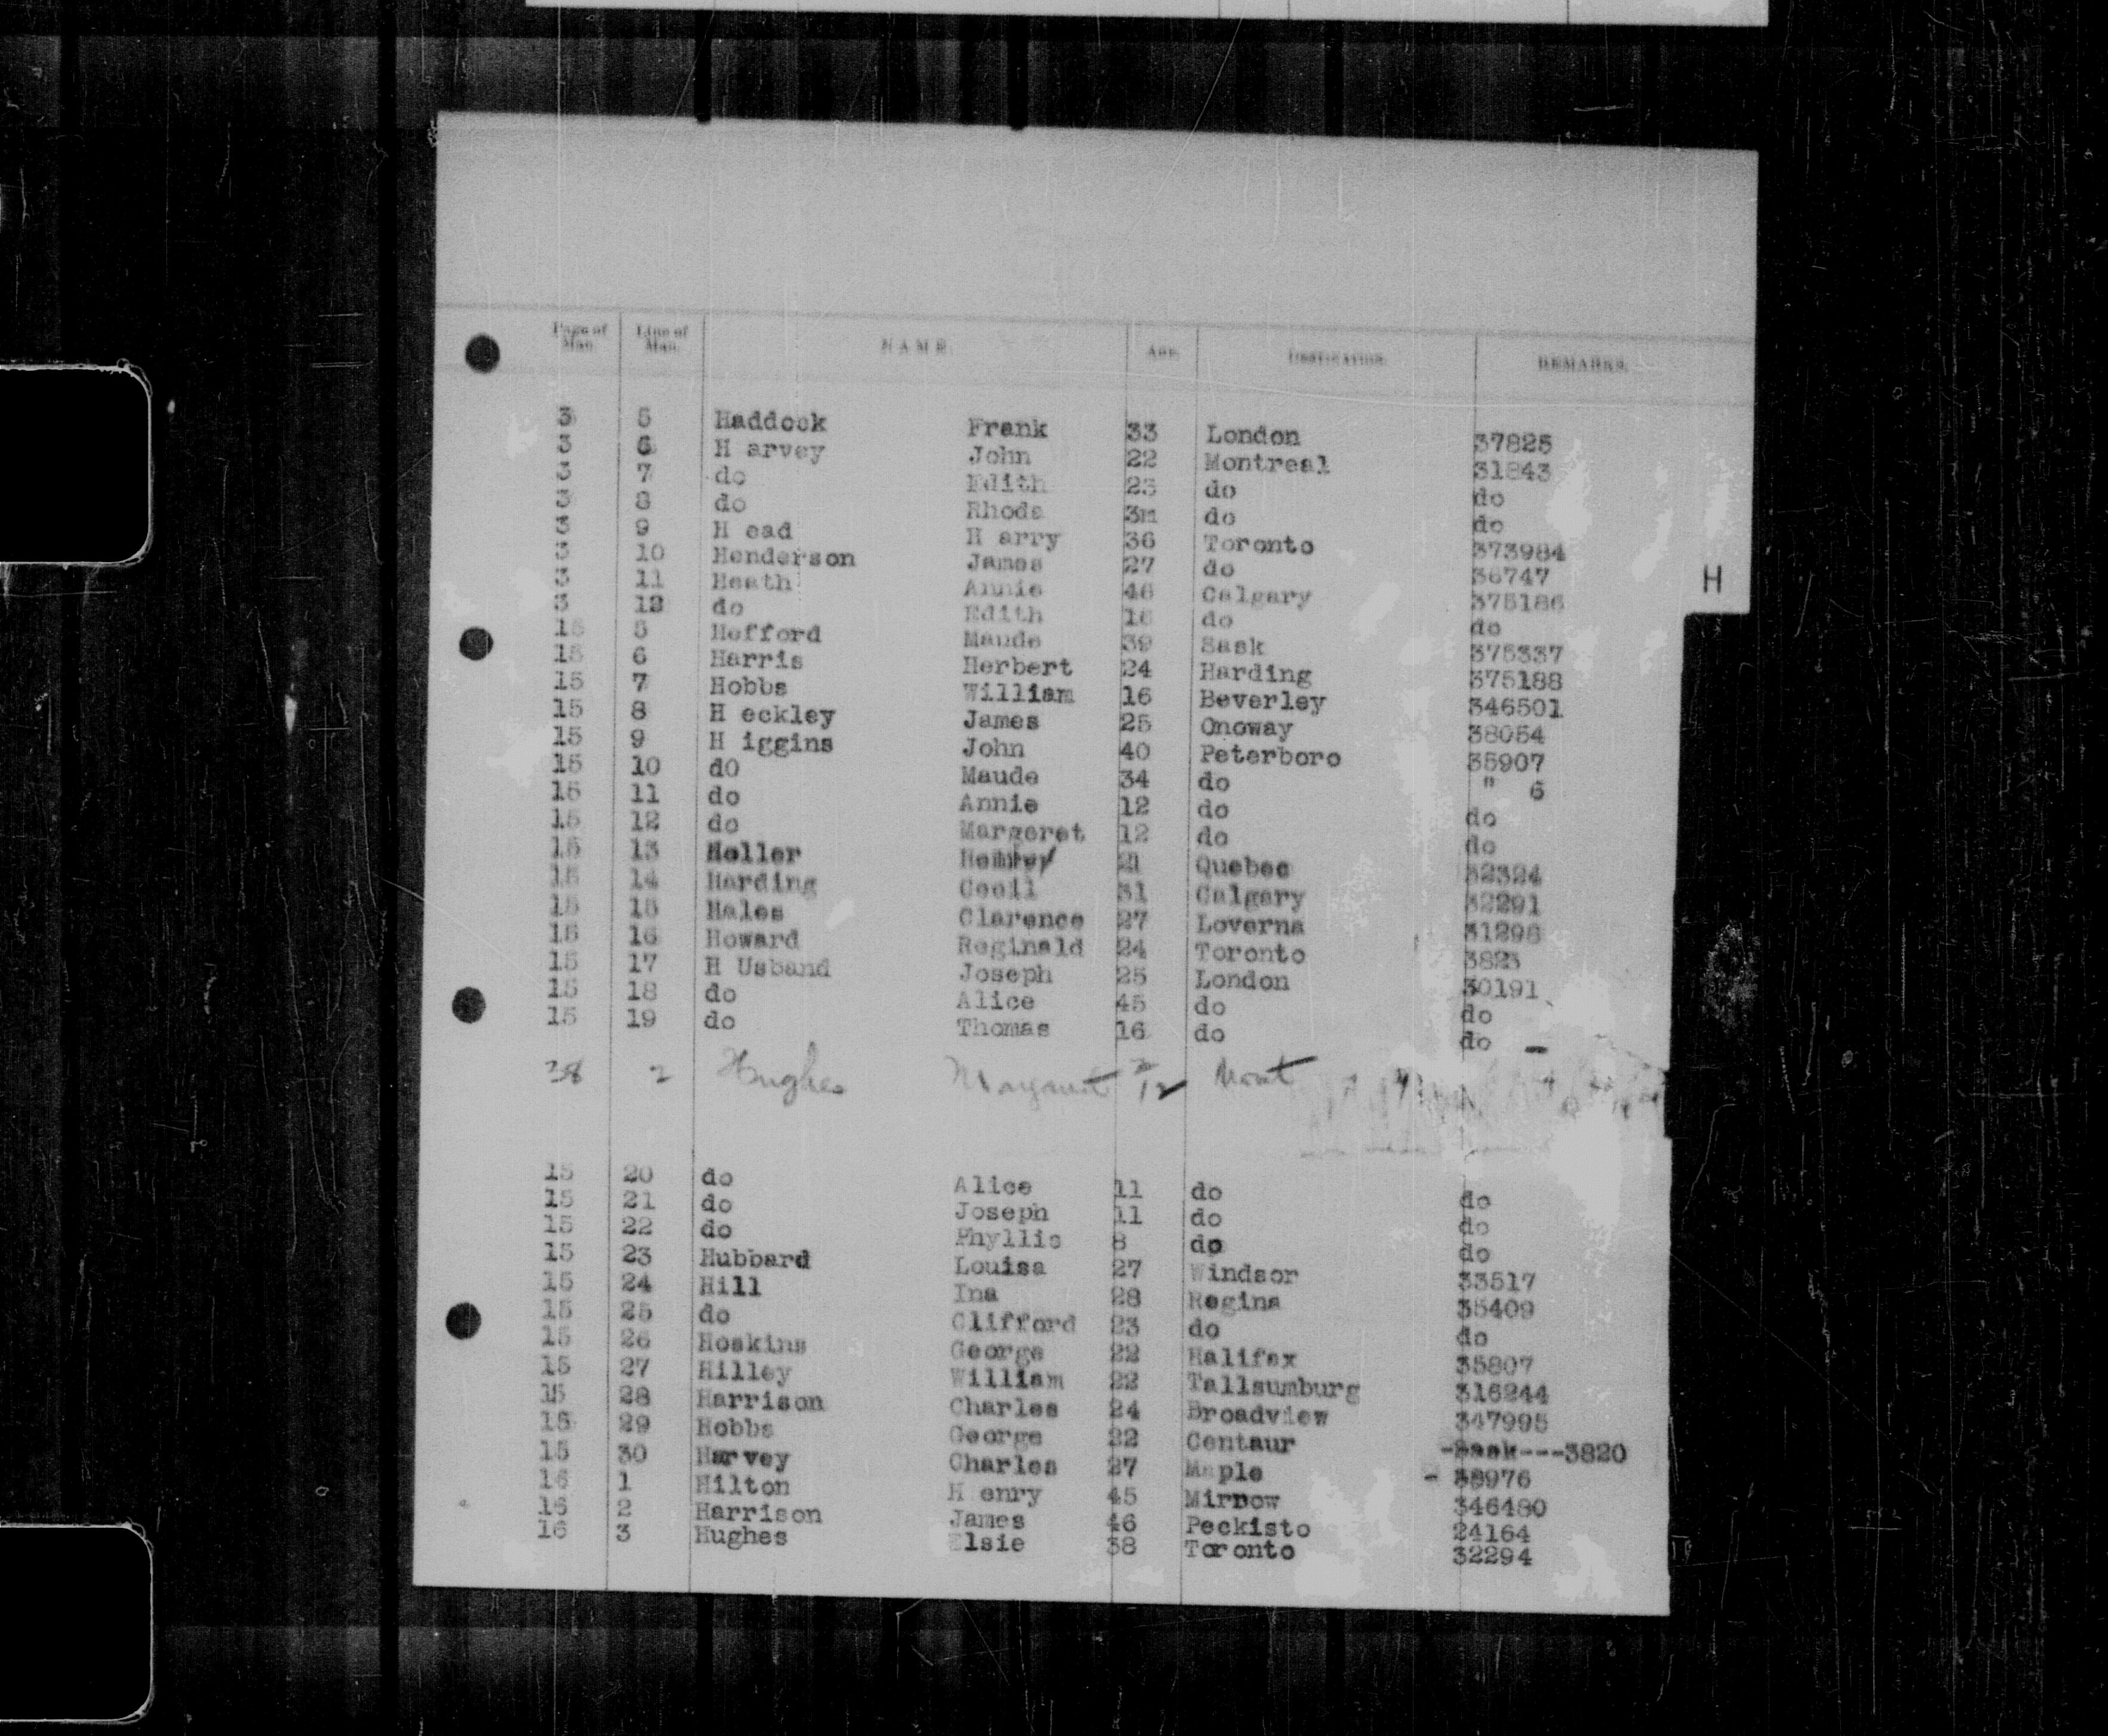 Page of Man. Line of Man. NAME. AGE. DESTINATION. REMARKS.
3 5 Haddock Frank 33 London 37825
3 6 H arvey John 22 Montreal 31843
3 7 do Edith 23 do do
3 8 do Rhoda 3m do do
3 9 H ead H arry 36 Toronto 373984
3 10 Henderson James 27 do 36747
3 11 Heath Annie 46 Calgary 375186
3 12 do Edith 16 do do
H
15 5 Hefford Maude 39 Sask 375337
15 6 Harris Herbert 24 Harding 375188
15 7 Hobbs William 16 Beverley 346501
15 8 H eckley James 25 Onoway 38054
15 9 H iggins John 40 Peterboro 35907
15 10 dO Maude 34 do " 6
15 11 do Annie 12 do do
15 12 do Margeret 12 do do
15 13 Heller 21 Quebec 32324
15 14 Harding Cecil 31 Calgary 32291
15 15 Hales Clarence 27 Loverna 31298
15 16 Howard Reginald 24 Toronto 3823
15 17 H Usband Joseph 25 London 30191
15 18 do Alice 45 do do
15 19 do Thomas 16 do do
38 2 Hughes Margaret Mont
15 20 do Alice 11 do do
15 21 do Joseph 11 do do
15 22 do Phyllis 8 do do
15 23 Hubbard Louisa 27 Windsor 33517
15 24 Hill Ina 28 Regina 35409
15 25 do Clifford 23 do do
15 26 Hoskins George 22 Halifax 35807
15 27 Hilley William 22 Tallsumburg 316244
15 28 Harrison Charles 24 Broadview 347995
15 29 Hobbs George 22 Centaur -Sask---3820
15 30 Harvey Charles 27 Maple - 38976
16 1 Hilton H enry 45 Mirnow 346480
16 2 Harrison James 46 Peckisto 24164
16 3 Hughes Elsie 38 Toronto 32294